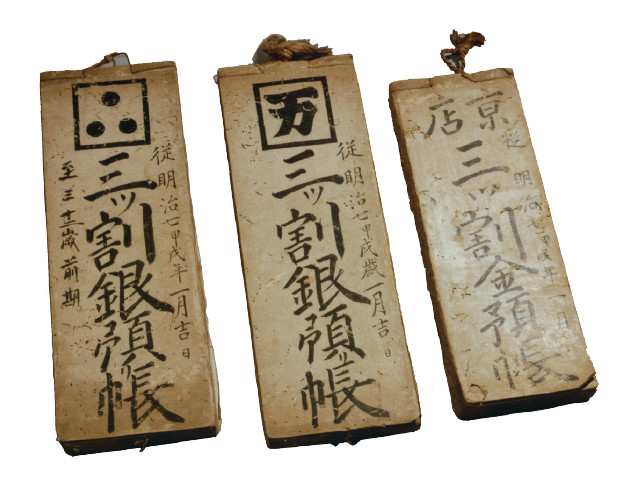 従明治七甲戌年一月吉日
三ッ割銀預帳
至三 歳前期
万
従明治七甲戌歳一月吉日
三ッ割銀預帳
京店
従明治七甲戌年一月
三ッ割金預帳